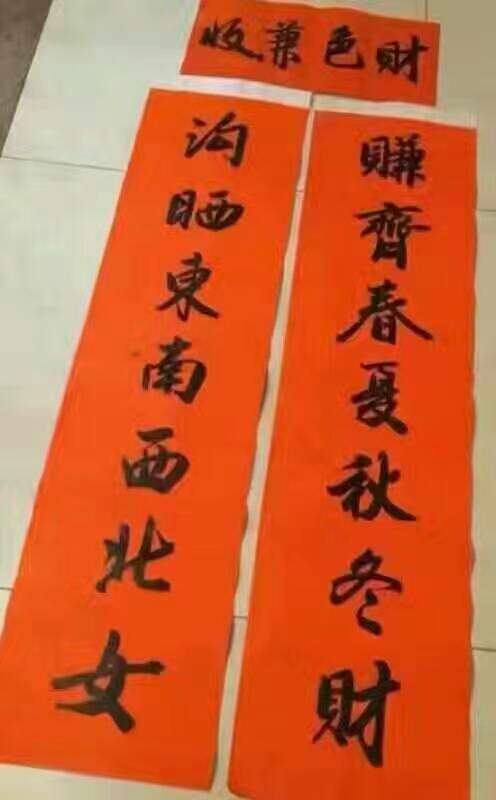 财色兼收
賺齊春夏秋冬财
沟晒東南西北女